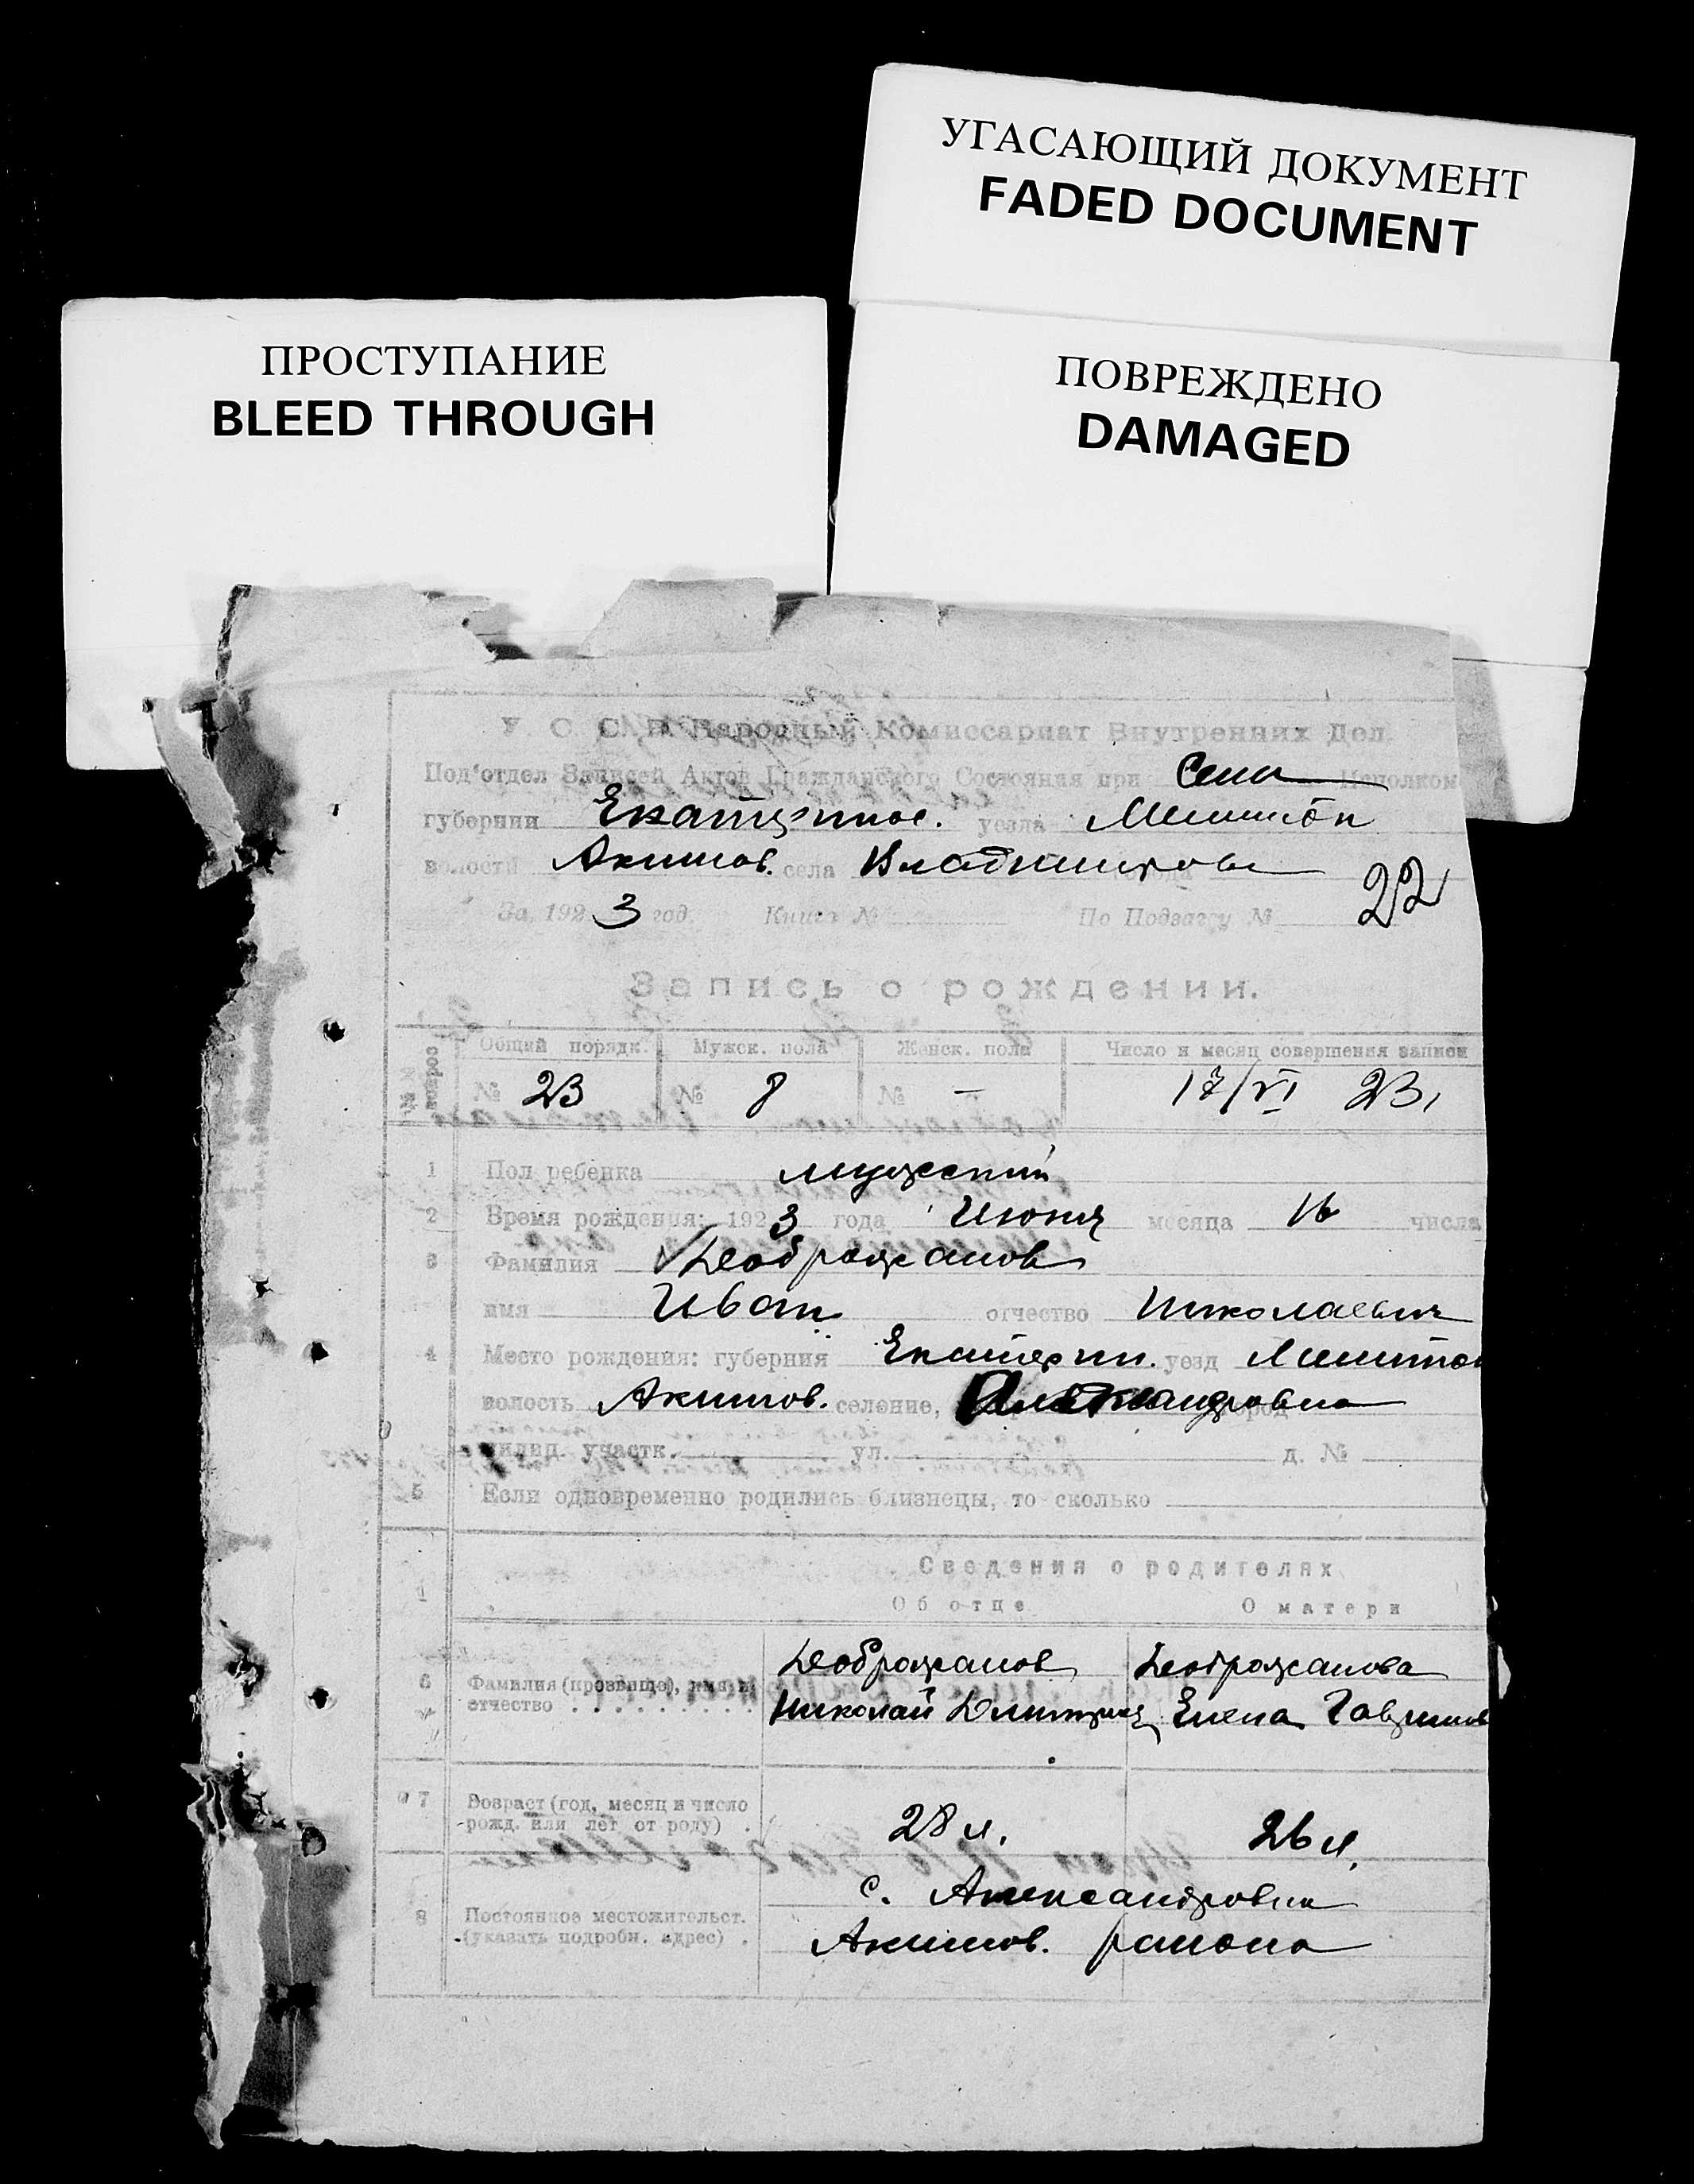 УГАСАЮЩИЙ ДОКУМЕНТ
FADED DOCUMENT
ПРОСТУПАНИЕ
BLEED THROUGH
ПОВРЕЖДЕНО
DAMAGED
У. С. С. Р. Народный Комиссариат Внутренних Дел.
Под'отдел Записей Актов Гражданского Состояния при Исполком
губернии уезда
волости Акимов. села
За, 1923 год. Книга № По Подзагсу № 22
Запись о рождении.
Общий порядк. Мужск. пола Женск. пола Число и месяц совершения записи
№ 23 № 8 № — 17/VI 23,
1 Пол ребенка мужский
2 Время рождения: 1923 года Июня месяца 16 числа
3 Фамилия Доброжанов
имя Иван отчество Николаевич
4 Место рождения: губерния Екатерин. уезд Мелитоп
волость Акимов. селение, Александровка
милиц. участк. ул. д. №
5 Если одновременно родились близнецы, то сколько
Сведения о родителях
Об отце О матери
6 Фамилия (прозвище), имя и отчество . . . . . . . . . Доброжанов Доброжанова
Николай Дмитриев Елена Гаврилов
7 Возраст (год, месяц и число рожд. или лет от роду) . 28 л. 26 л.
8 Постоянное местожительст. (указать подробн. адрес) . с. Александровка
Акимов. района